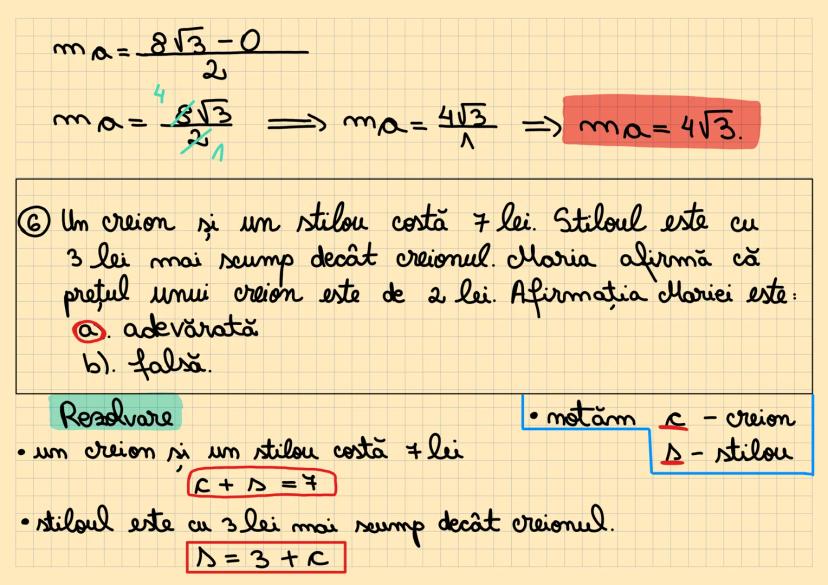 ma = 8√3 - 0 / 2
ma = 8√3 / 2 4 1 ⟹ ma = 4√3 / 1 ⟹ ma = 4√3.
⑥ Un creion și un stilou costă 7 lei. Stiloul este cu
3 lei mai scump decât creionul. Maria afirmă că
prețul unui creion este de 2 lei. Afirmația Mariei este:
a). adevărată
b). falsă.
Rezolvare
• notăm c - creion
s - stilou
• un creion și un stilou costă 7 lei
c + s = 7
• stiloul este cu 3 lei mai scump decât creionul.
s = 3 + c